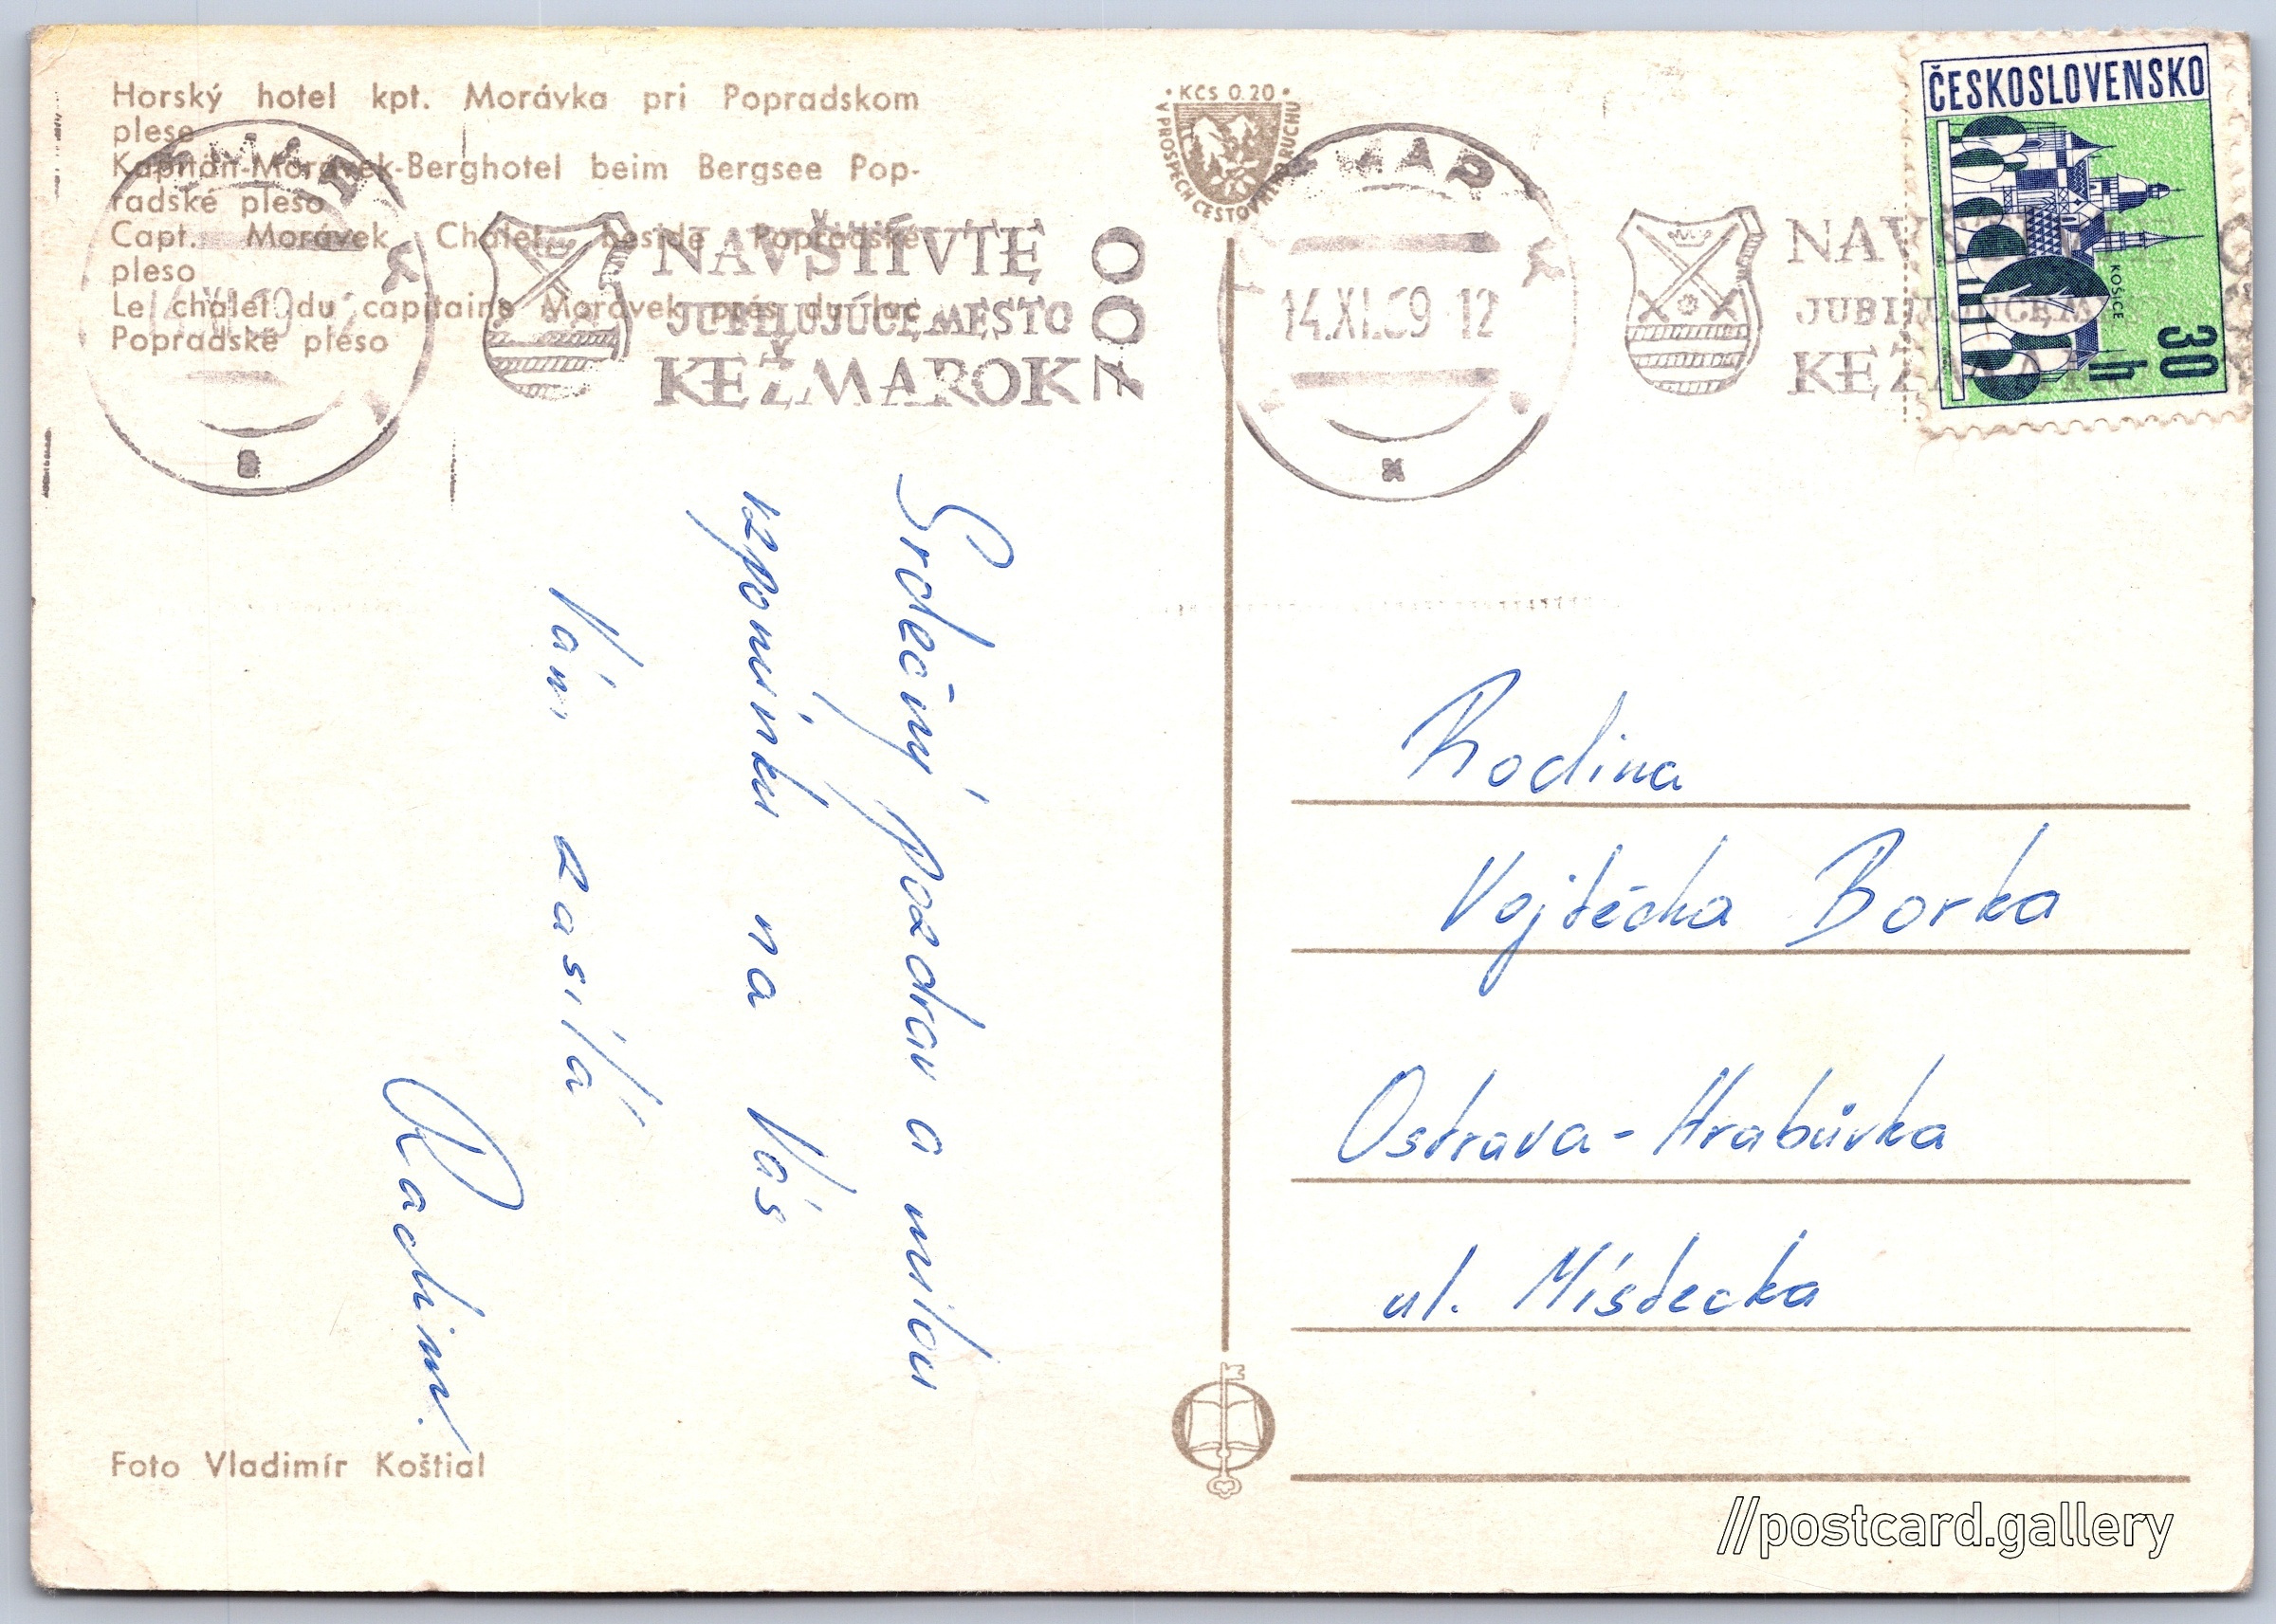 Horský hotel kpt. Morávka pri Popradskom
plese
Kapitän-Morávek-Berghotel beim Bergsee Pop-
radské pleso
Capt. Morávek Chalet beside Popradské
pleso
Le chalet du capitaine Morávek prés du lac
Popradské pleso
NAVŠTÍVTE
JUBILUJÚCE MESTO
KEŽMAROK
700
· KČS 0.20 ·
V PROSPECH CESTOVNÉHO RUCHU
14.XI.69-12
NAVŠTÍVTE
JUBILUJÚCE MESTO
KEŽMAROK
ČESKOSLOVENSKO
KOŠICE
30 h
Srdečný pozdrav a milou
vzpomínku na Vás
Vám zasílá
Radim.
Rodina
Vojtěcha Borka
Ostrava-Hrabůvka
ul. Místecka
Foto Vladimír Koštial
//postcard.gallery